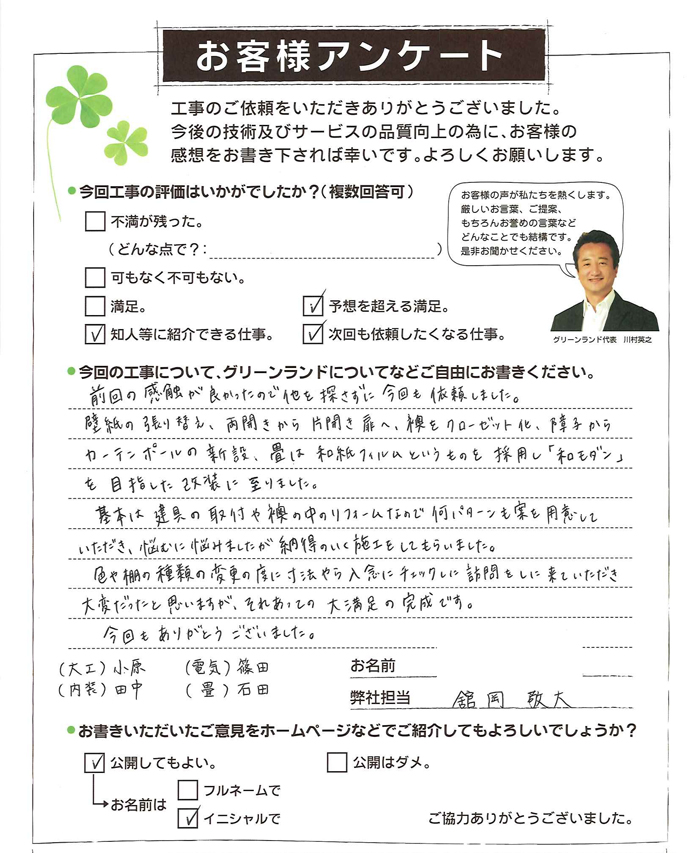 お客様アンケート
工事のご依頼をいただきありがとうございました。
今後の技術及びサービスの品質向上の為に、お客様の
感想をお書き下されば幸いです。よろしくお願いします。
●今回工事の評価はいかがでしたか?(複数回答可)
お客様の声が私たちを熱くします。
厳しいお言葉、ご提案、
もちろんお誉めの言葉など
どんなことでも結構です。
是非お聞かせください。
グリーンランド代表 川村英之
□ 不満が残った。
(どんな点で?: )
□ 可もなく不可もない。
□ 満足。 ☑ 予想を超える満足。
☑ 知人等に紹介できる仕事。 ☑ 次回も依頼したくなる仕事。
●今回の工事について、グリーンランドについてなどご自由にお書きください。
前回の感触が良かったので他を探さずに今回も依頼しました。
壁紙の張り替え、両開きから片開き扉へ、襖をクローゼット化、障子から
カーテンポールの新設、畳は和紙フィルムというものを採用し「和モダン」
を目指した改装に至りました。
基本は建具の取付や襖の中のリフォームなので何パターンも案を用意して
いただき、悩むに悩みましたが納得のいく施工をしてもらいました。
色や棚の種類の変更の度に寸法やら入念にチェックしに訪問をしに来ていただき
大変だったと思いますが、それあっての大満足の完成です。
今回もありがとうございました。
(大工)小原 (電気)篠田
(内装)田中 (畳)石田
お名前
弊社担当 舘岡 敬大
●お書きいただいたご意見をホームページなどでご紹介してもよろしいでしょうか?
☑ 公開してもよい。 □ 公開はダメ。
お名前は □ フルネームで
☑ イニシャルで
ご協力ありがとうございました。